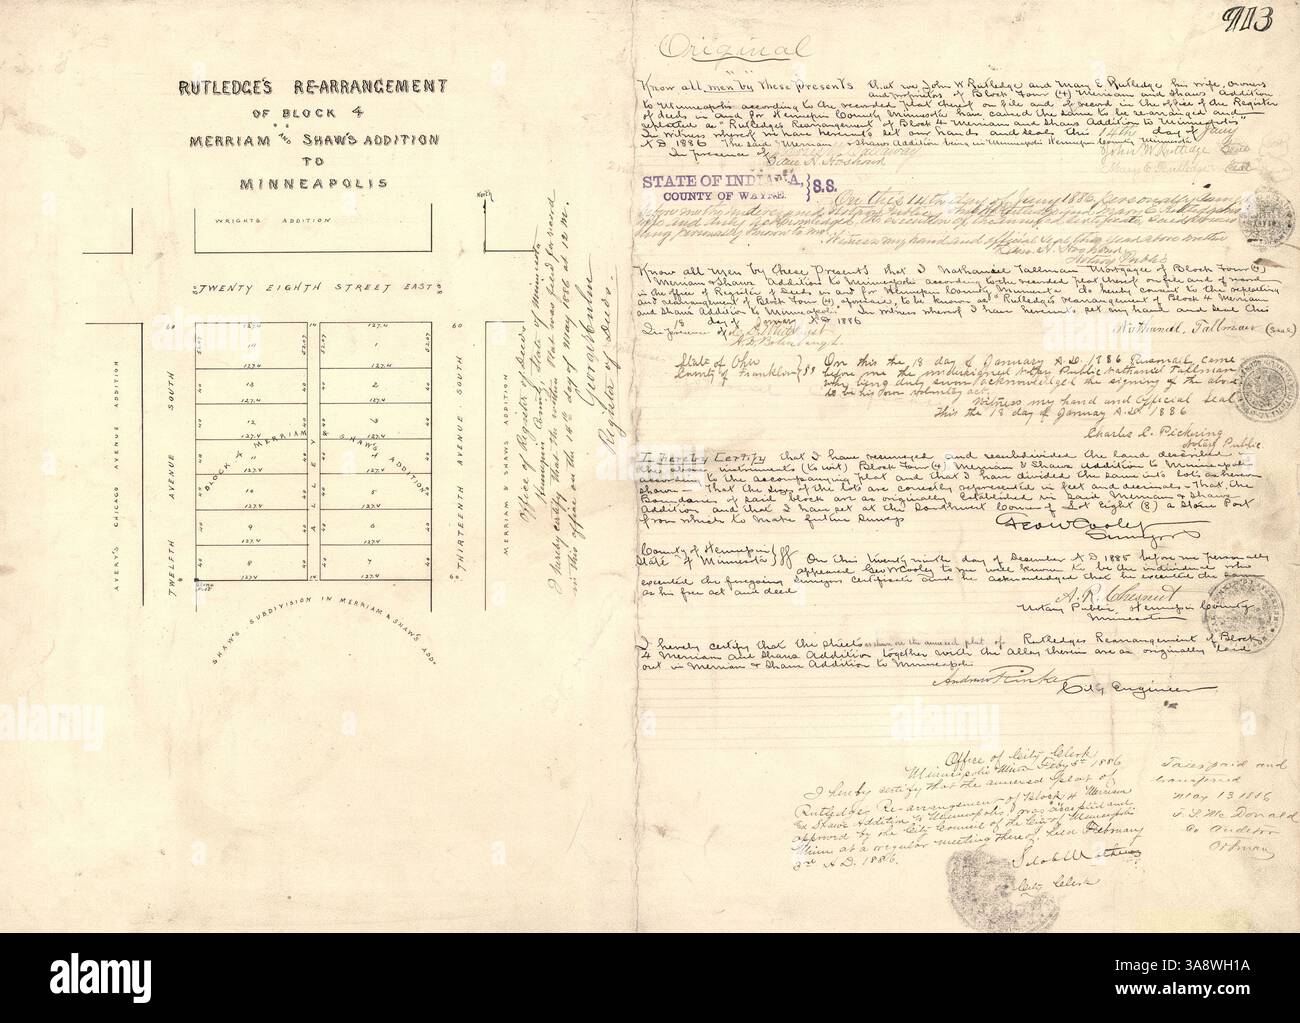 913
Original
RUTLEDGE'S RE-ARRANGEMENT
OF BLOCK 4
MERRIAM AND SHAW'S ADDITION
TO
MINNEAPOLIS
North
WRIGHTS ADDITION
TWENTY EIGHTH STREET EAST
60 127.4 14 127.4 60
52.07 14 1 52.07
127.4 127.4
40 13 2 40
127.4 127.4
40 12 40
127.4 127.4
BLOCK 4 MERRIAM & SHAW'S ADDITION
40 11 4 40
127.4 127.4
40 10 5 40
127.4 127.4
40 9 6 40
127.4 127.4
40 8 7 40
127.4 14 127.4
ALLEY
Stone Post
AVERY'S CHICAGO AVENUE ADDITION
TWELFTH AVENUE SOUTH
THIRTEENTH AVENUE SOUTH
MERRIAM & SHAW'S ADDITION
SHAW'S SUBDIVISION IN MERRIAM & SHAW'S ADD.
Office of Register of Deeds
Hennepin County, State of Minnesota
I hereby certify that the within Plat was filed for record
in this office on the 14th day of May 1886 at 12 M.
Register of Deeds.
Know all men by these Presents that we John W Rutledge and Mary E Rutledge his wife, owners
and proprietors of Block Four (4) Merriam and Shaws Addition
to Minneapolis according to the recorded plat thereof on file and of record in the office of the Register
of deeds in and for Hennepin County Minnesota have caused the same to be rearranged and
replatted as "Rutledge's Rearrangement of Block 4 Merriam and Shaws Addition to Minneapolis"
In witness whereof we have hereunto set our hands and seals this 14th day of Jany
A.D. 1886 The said Merriam & Shaws Addition being in Minneapolis Hennepin County Minnesota
In presence of John W Rutledge Seal
Mary E Rutledge Seal
STATE OF INDIANA,
COUNTY OF WAYNE. } S.S.
On this 14th day of Jany 1886 personally came
Witness my hand and official seal the year above written
Notary Public
Know all Men by these Presents that I Nathaniel Tallman Mortgagee of Block Four (4)
Merriam & Shaws Addition to Minneapolis according to the recorded plat thereof on file and of record
in the office of Register of Deeds in and for Hennepin County Minnesota do hereby consent to the replatting
and rearrangement of Block Four (4) aforesaid, to be known as "Rutledge's Rearrangement of Block 4 Merriam
and Shaws Addition to Minneapolis" In witness whereof I have hereunto set my hand and seal this
18 day of January A.D 1886
In presence of Nathaniel Tallman (Seal)
State of Ohio
County of Franklin } SS On this the 18 day of January A.D. 1886 Personally came
before me the undersigned Notary Public Nathaniel Tallman
who being duly sworn acknowledged the signing of the above
to be his own voluntary act,
Witness my hand and official seal
this the 18 day of January A.D. 1886
Charles C. Pickering
Notary Public
I hereby Certify that I have resurveyed and resubdivided the land described in
the above instruments (to wit) Block Four (4) Merriam & Shaws Addition to Minneapolis
according to the accompanying plat and that I have divided the same into lots as herein
shown — That the sizes of the lots are correctly represented in feet and decimals — That the
Boundaries of said block are as originally Established in said Merriam & Shaws
Addition and that I have set at the Southwest Corner of Lot Eight (8) a Stone Post
from which to make future surveys
Geo W Cooley
Surveyor
County of Hennepin
State of Minnesota } SS On this twenty ninth day of December A.D. 1885 before me personally
appeared Geo W Cooley to me well known to be the individual who
executed the foregoing surveyors certificate and he acknowledged that he executed the same
as his free act and deed
A. R. Chesnut
Notary Public, Hennepin County
Minnesota
I hereby certify that the streets as shown on the annexed plat of Rutledges Rearrangement of Block
4 Merriam and Shaws Addition together with the Alley therein are as originally laid
out in Merriam & Shaws Addition to Minneapolis
Andrew Rinker
City Engineer
Office of City Clerk
Minneapolis Minn Feby 5th 1886
I hereby certify that the annexed plat of
Rutledges Re-arrangement of Block 4 Merriam
and Shaw's Addition to Minneapolis was accepted and
approved by the City Council of the City of Minneapolis
Minn at a regular meeting thereof held February
3rd A.D. 1886.
City Clerk
Taxes paid and
transferred
May 13 1886
Co Auditor
alamy
Image ID: 3A8WH1A
www.alamy.com